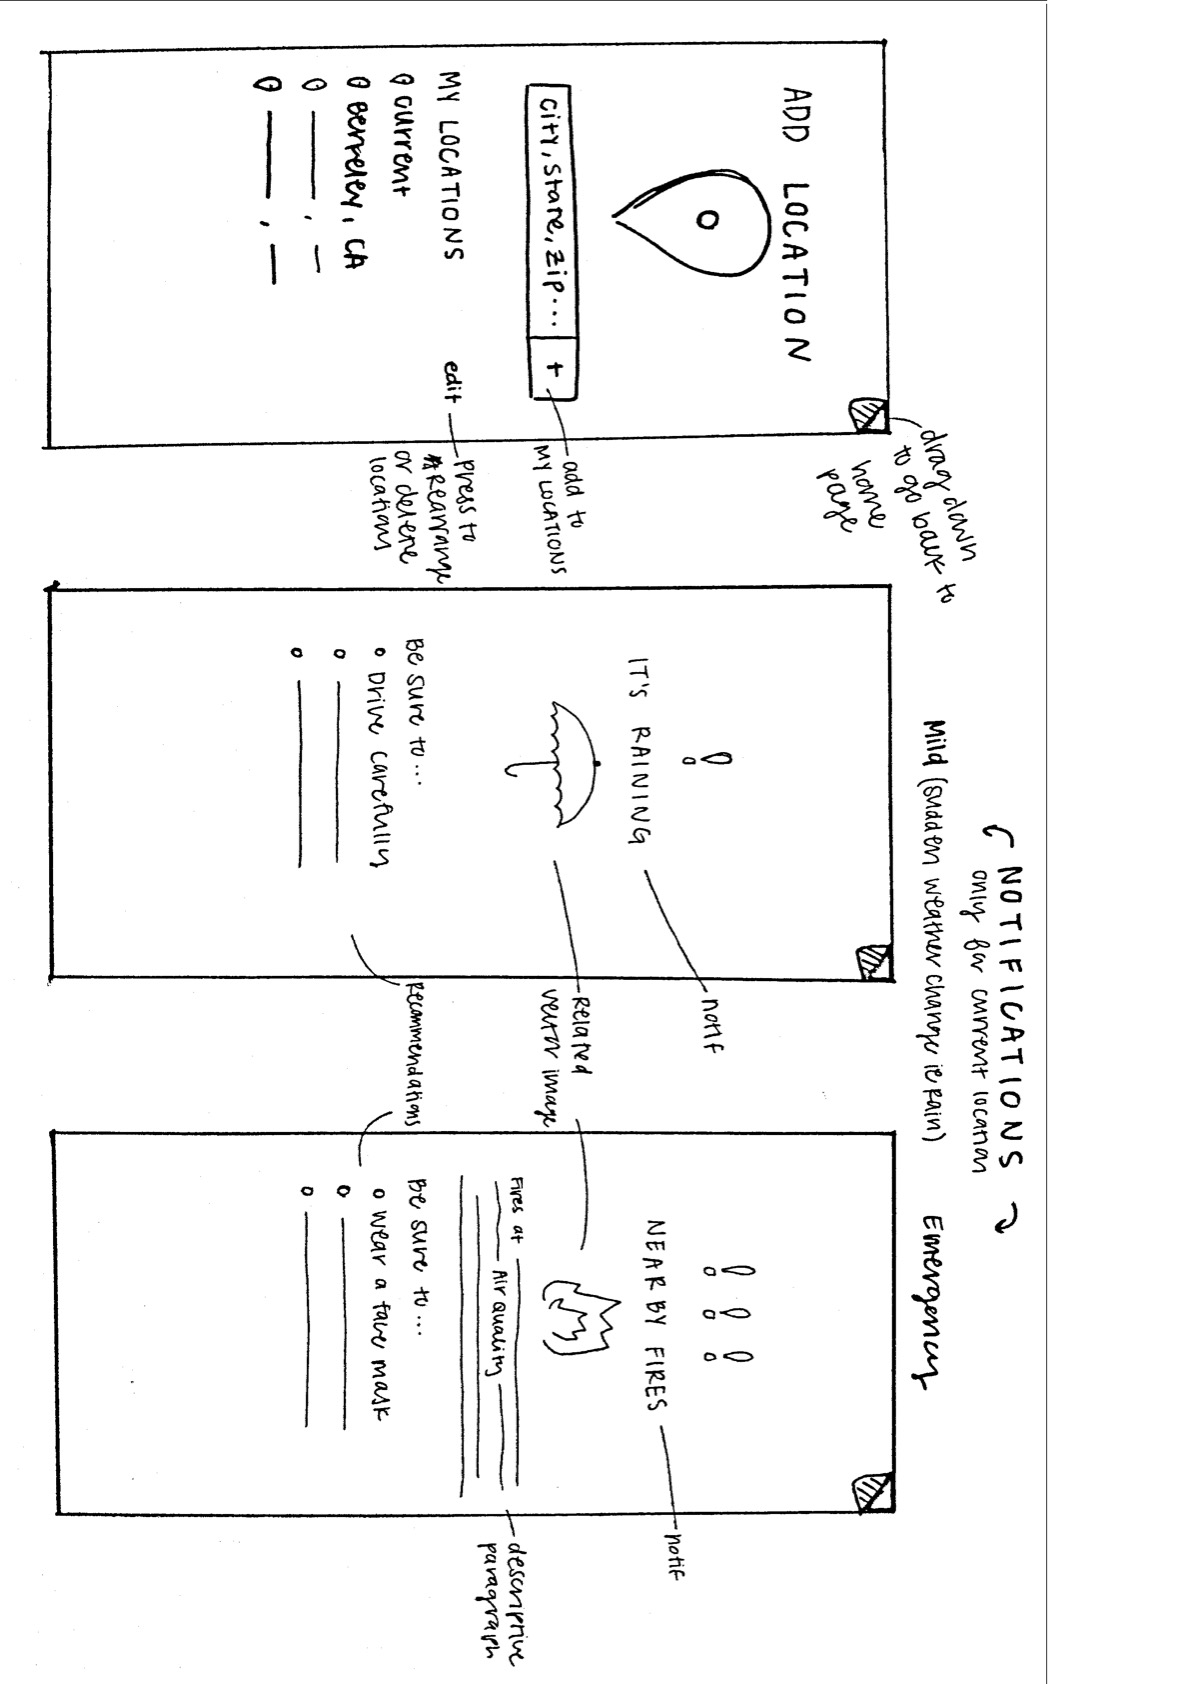 ADD LOCATION
city, state, zip... +
MY LOCATIONS
edit
current
Berkeley, CA
drag down
to go back to
home
page
add to
MY LOCATIONS
press to
rearrange
or delete
locations
NOTIFICATIONS
only for current location
Mild (sudden weather change ie rain)
!
IT'S RAINING
Be sure to...
Drive carefully
notif
Related
vector image
Recommendations
Emergency
! ! !
NEARBY FIRES
Fires at
Air quality
Be sure to...
wear a face mask
notif
descriptive
paragraph